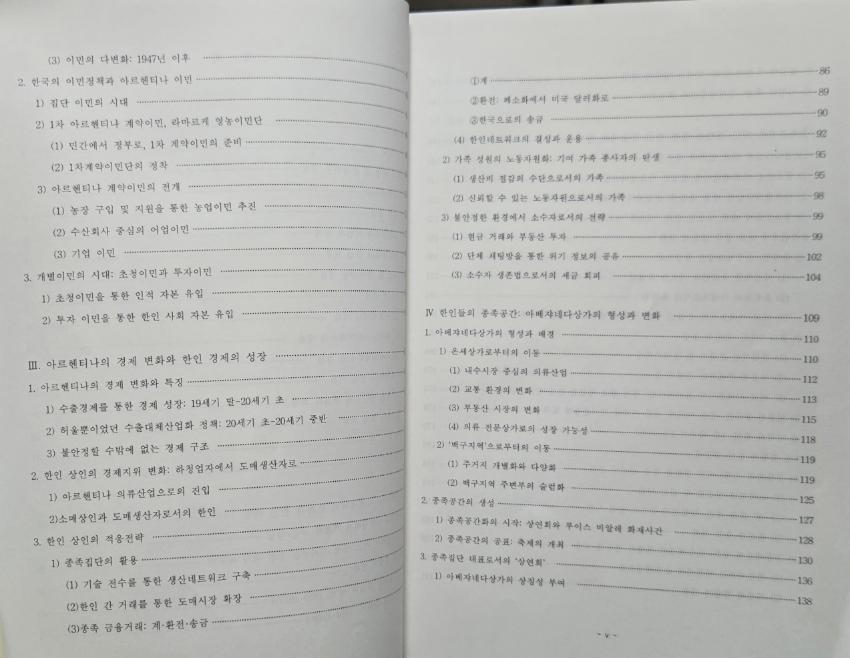 (3) 이민의 다변화: 1947년 이후
2. 한국의 이민정책과 아르헨티나 이민
1) 집단 이민의 시대
2) 1차 아르헨티나 계약이민, 라마르케 영농이민단
(1) 민간에서 정부로, 1차 계약이민의 준비
(2) 1차계약이민단의 정착
3) 아르헨티나 계약이민의 전개
(1) 농장 구입 및 지원을 통한 농업이민 추진
(2) 수산회사 중심의 어업이민
(3) 기업 이민
3. 개별이민의 시대: 초청이민과 투자이민
1) 초청이민을 통한 인적 자본 유입
2) 투자 이민을 통한 한인 사회 자본 유입
Ⅲ. 아르헨티나의 경제 변화와 한인 경제의 성장
1. 아르헨티나의 경제 변화와 특징
1) 수출경제를 통한 경제 성장: 19세기 말-20세기 초
2) 허울뿐이었던 수출대체산업화 정책: 20세기 초-20세기 중반
3) 불안정할 수밖에 없는 경제 구조
2. 한인 상인의 경제지위 변화: 하청업자에서 도매생산자로
1) 아르헨티나 의류산업으로의 진입
2)소매상인과 도매생산자로서의 한인
3. 한인 상인의 적응전략
1) 종족집단의 활용
(1) 기술 전수를 통한 생산네트워크 구축
(2)한인 간 거래를 통한 도매시장 확장
(3)종족 금융거래: 계·환전·송금
①계 86
②환전: 페소화에서 미국 달러화로 89
③한국으로의 송금 90
(4) 한인네트워크의 결성과 운용 92
2) 가족 성원의 노동자원화: 기여 가족 종사자의 탄생 95
(1) 생산비 절감의 수단으로서의 가족 95
(2) 신뢰할 수 있는 노동자원으로서의 가족 98
3) 불안정한 환경에서 소수자로서의 전략 99
(1) 현금 거래와 부동산 투자 99
(2) 단체 채팅방을 통한 위기 정보의 공유 102
(3) 소수자 생존법으로서의 세금 회피 104
Ⅳ 한인들의 종족공간: 아베쟈네다상가의 형성과 변화 109
1. 아베쟈네다상가의 형성과 배경 110
1) 온세상가로부터의 이동 110
(1) 내수시장 중심의 의류산업 112
(2) 교통 환경의 변화 113
(3) 부동산 시장의 변화 115
(4) 의류 전문상가로의 성장 가능성 118
2) '백구지역'으로부터의 이동 119
(1) 주거지 개별화와 다양화 119
(2) 백구지역 주변부의 슬럼화 125
2. 종족공간의 생성 127
1) 종족공간화의 시작: 상연회와 루이스 비알레 화재사건 128
2) 종족공간의 공표: 축제의 개최 130
3. 종족집단 대표로서의 '상연회' 136
1) 아베쟈네다상가의 상징성 부여 138
- v -